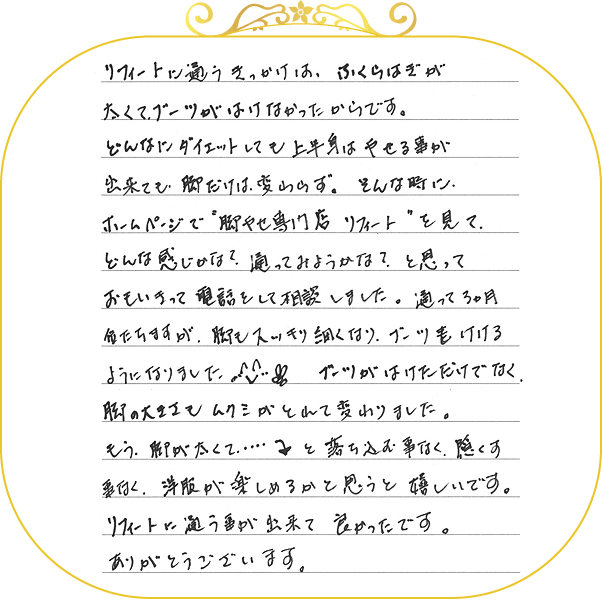 リフィートに通うきっかけは、ふくらはぎが
太くて、ブーツがはけなかったからです。
どんなにダイエットしても上半身はやせる事が
出来ても、脚だけは、変わらず。そんな時に、
ホームページで"脚やせ専門店 リフィート"を見て、
どんな感じかな?、通ってみようかな?、と思って
おもいきって電話をして相談しました。通って3ヵ月
たちますが、脚もスッキリ細くなり、ブーツもはける
ようになりました ブーツがはけただけでなく、
脚の太さもムクミがとれて変わりました。
もう、脚が太くて‥‥‥ と落ち込む事なく、隠くす
事なく、洋服が楽しめるかと思うと嬉しいです。
リフィートに通う事が出来て 良かったです。
ありがとうございます。